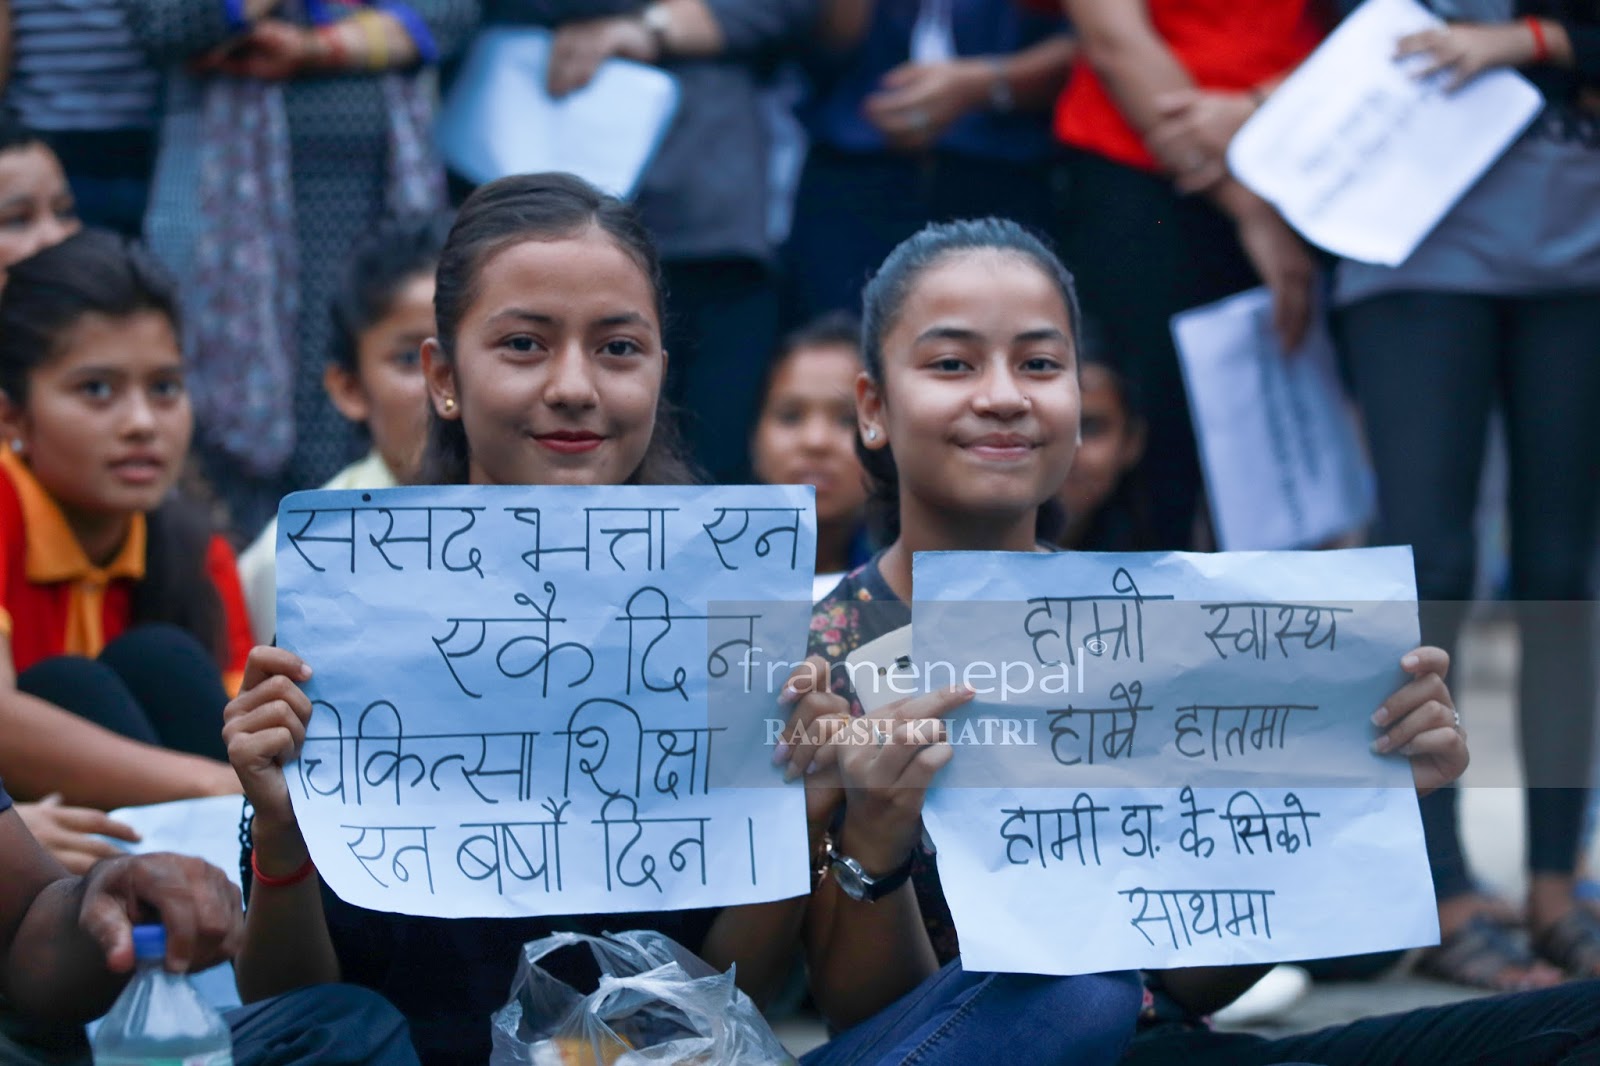 संसद भत्ता एन
एकै दिन
चिकित्सा शिक्षा
एन बर्षौ दिन ।
हाम्रो स्वास्थ
हाम्रै हातमा
हामी डा. के सिको
साथमा
framenepal
RAJESH KHATRI